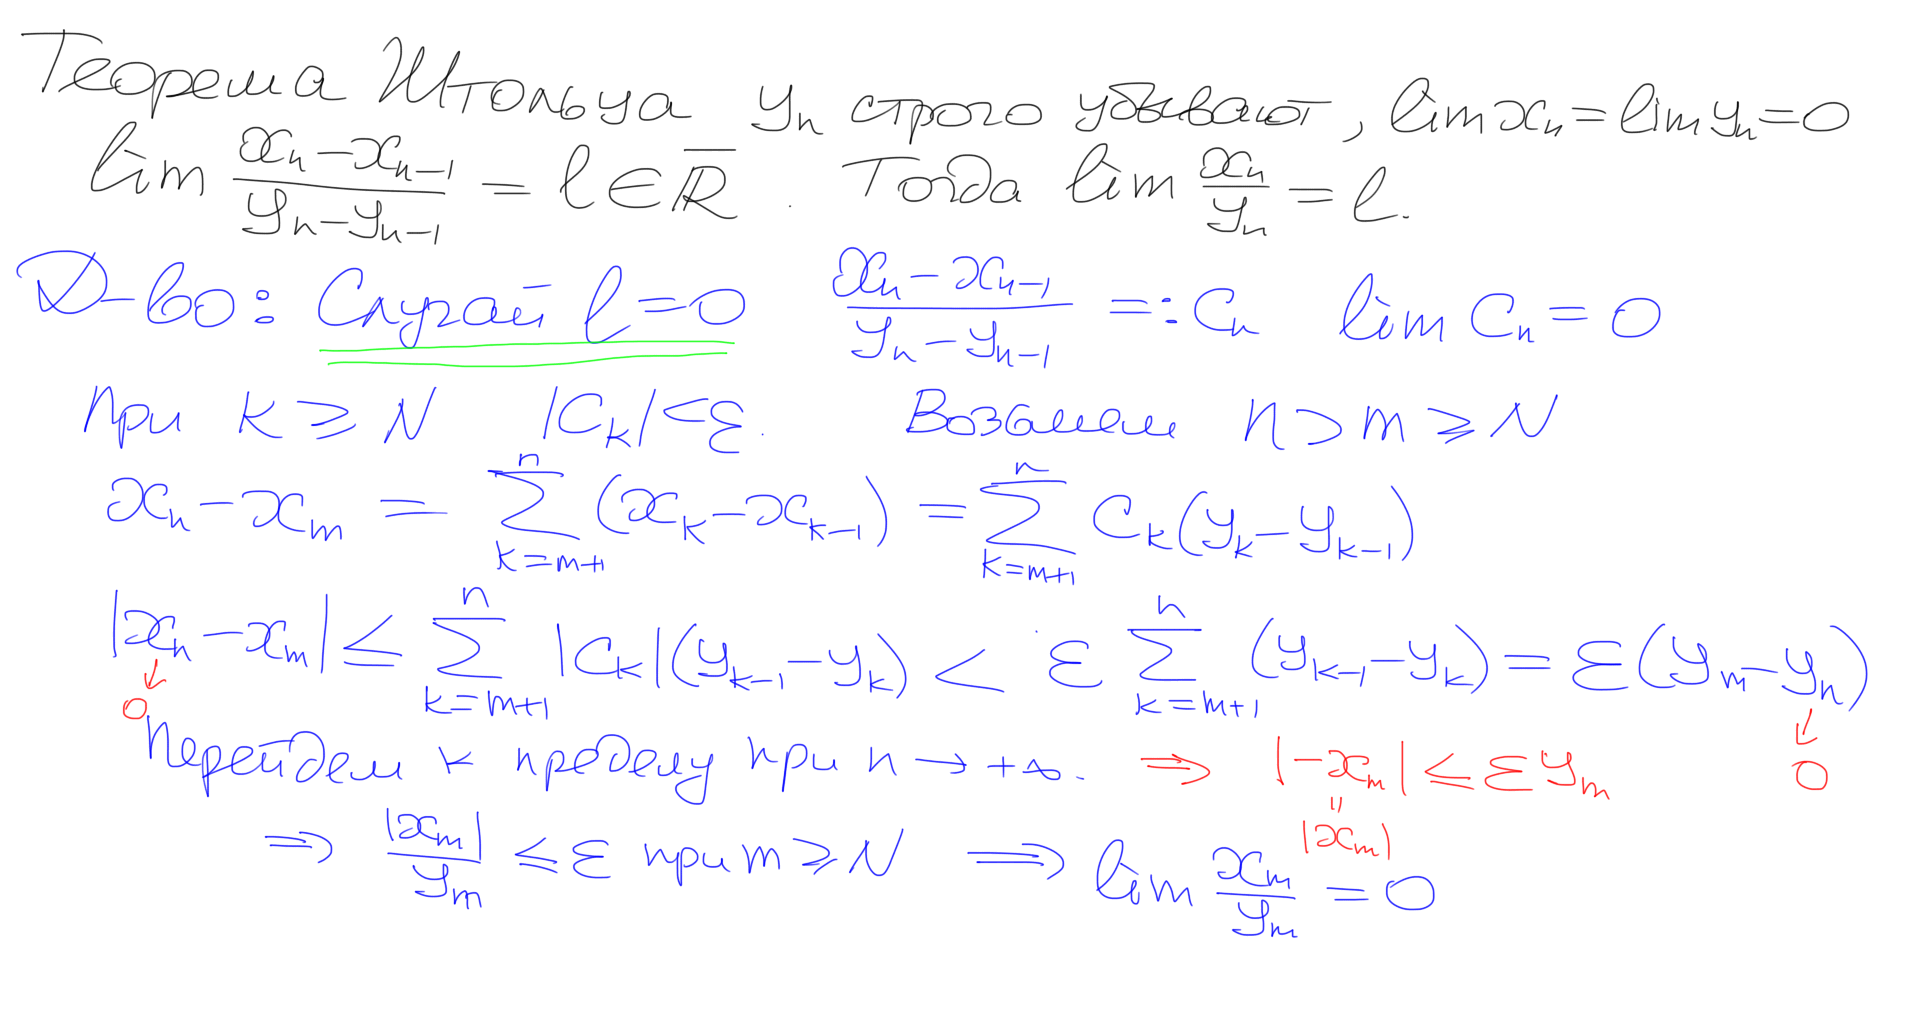 Теорема Штольца yₙ строго убывают, lim xₙ = lim yₙ = 0
lim (xₙ − xₙ₋₁)/(yₙ − yₙ₋₁) = l ∈ R̅. Тогда lim xₙ/yₙ = l.
Д-во: Случай l = 0 (xₙ − xₙ₋₁)/(yₙ − yₙ₋₁) =: Cₙ lim Cₙ = 0
При k ⩾ N |Cₖ| < ε. Возьмем n > m ⩾ N
xₙ − xₘ = ∑_{k=m+1}^{n} (xₖ − xₖ₋₁) = ∑_{k=m+1}^{n} Cₖ(yₖ − yₖ₋₁)
|xₙ − xₘ| ≤ ∑_{k=m+1}^{n} |Cₖ|(yₖ₋₁ − yₖ) < ε ∑_{k=m+1}^{n} (yₖ₋₁ − yₖ) = ε(yₘ − yₙ)
↓ 0 ↓ 0
Перейдем к пределу при n → +∞. ⇒ |−xₘ| ≤ ε yₘ
= |xₘ|
⇒ |xₘ|/yₘ ≤ ε при m ⩾ N ⇒ lim xₘ/yₘ = 0